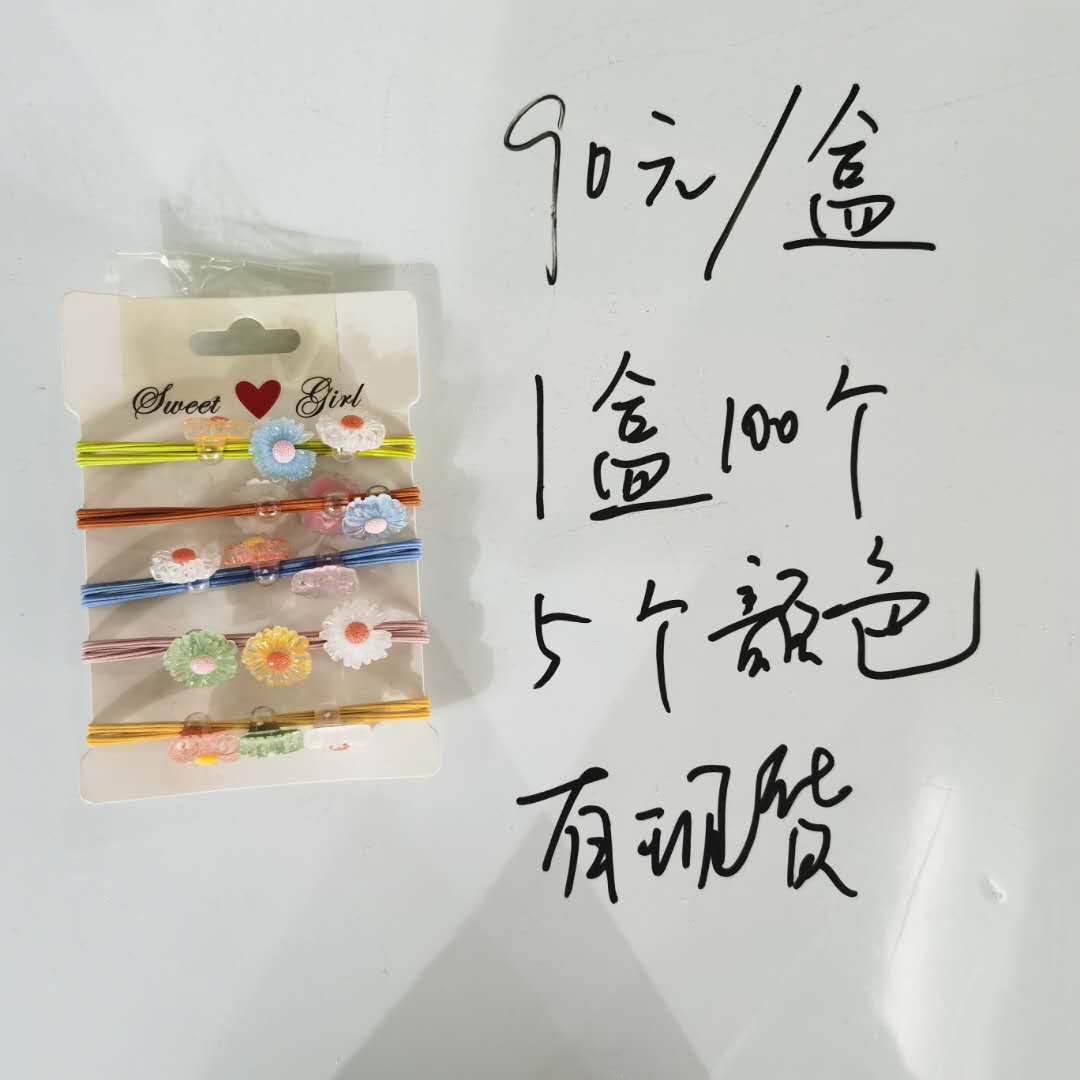 Sweet Girl
90元/盒
1盒100个
5个颜色
有现货